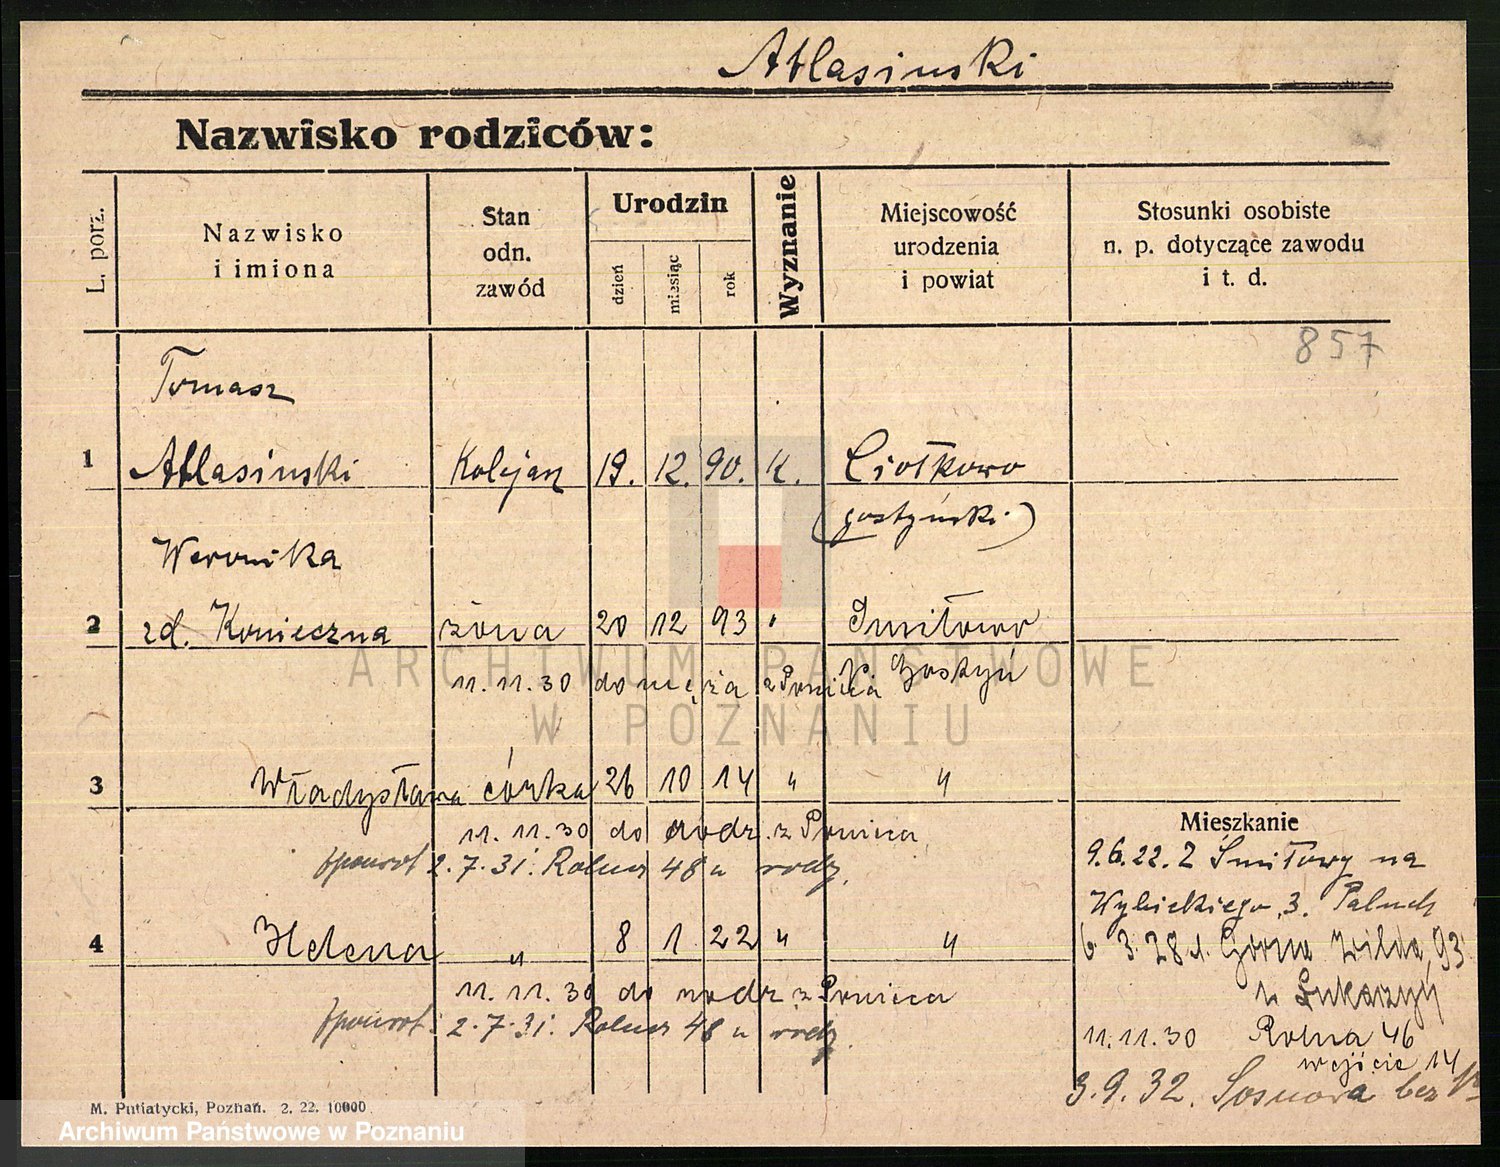 Atlasinski
Nazwisko rodziców:
L. porz.
Nazwisko
i imiona
Stan
odn.
zawód
Urodzin
dzień
miesiąc
rok
Wyznanie
Miejscowość
urodzenia
i powiat
Stosunki osobiste
n. p. dotyczące zawodu
i t. d.
857
Tomasz
1 Atlasinski Kolejarz 19. 12. 90. K. Ciołkowo
(gostyński)
Weronika
2 zd. Konieczna żona 20 12 93 " Smiłowo
p. Gostyń
11.11.30 do męża z Ponieca
3 Władysława córka 26 10 14 " "
11.11.30 do rodz. z Ponieca
2.7.31. Rolna 48 u rodz.
4 Helena " 8 1 22 " "
11.11.30 do rodz. z Ponieca
2.7.31. Rolna 48 u rodz.
Mieszkanie
9.6.22. Z Smiłowy na
Wybickiego 3. Paluch
6 3.28 Górna Wilda 93
u
11.11.30 Rolna 46
wejście 14
3.9.32. Sosnowa bez
M. Putiatycki, Poznań. 2. 22. 10000
ARCHIWUM PAŃSTWOWE
W POZNANIU
Archiwum Państwowe w Poznaniu